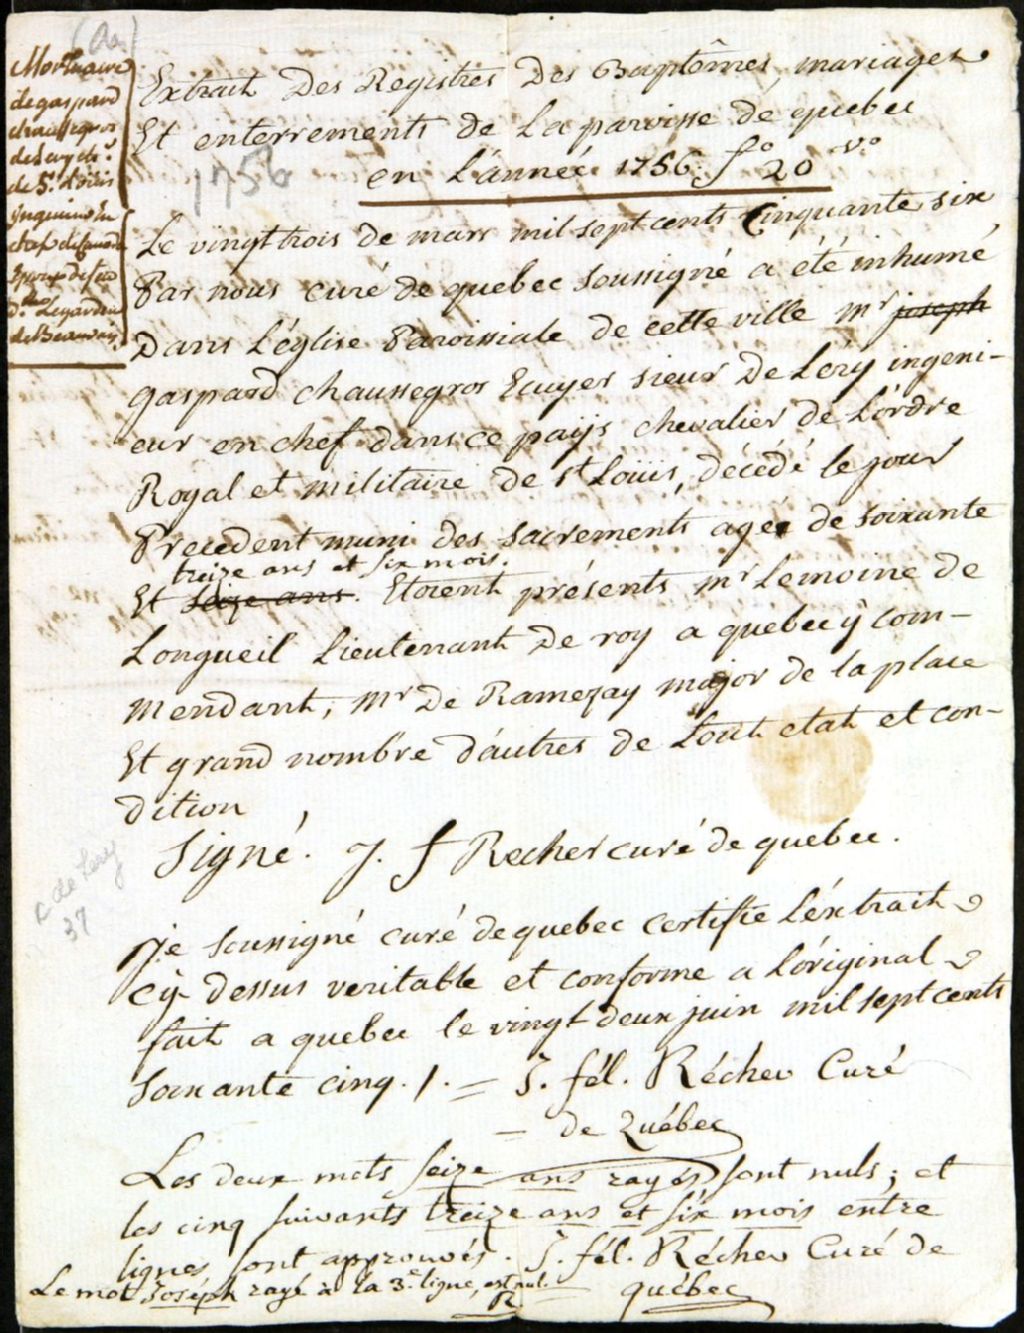 (Aa)
Mortuaire
de gaspard
chaussegros
de Lery chr
de St. Loüis
Ingenieur En
chef de Canada
Epoux de feue
De. Legardeur
de Beauvais
Extrait Des Registres Des Baptêmes mariages
Et enterrements de La paroisse de quebec
en L'année 1756. fo 20 vo
1756
Le vingt trois de mars mil sept cents Cinquante six
Par nous curé de quebec soussigné a été inhumé
Dans L'église Paroissiale de cette ville Mr joseph
gaspard chaussegros Ecuyer sieur De Léry ingeni-
eur en chef dans ce païjs chevalier de L'ordre
Royal et militaire de st Loüis, décédé le jour
Precedent muni des sacrements agé de soixante
treize ans et six mois.
Et seize ans. Etoient présents Mr Lemoine de
Longueil Lieutenant De roy a quebec ÿ com-
mendant, Mr De Ramezay major de la place
Et grand nombre d'autres de tout etat et con-
dition
Signé. J. f Recher curé de quebec.
C de Lery
37
Je soussigné curé de quebec certifie L'éxtrait
cÿ dessus veritable et conforme a L'original
fait a quebec le vingt deux juin mil sept cents
soixante cinq. /. = J. fél. Récher Curé
— de Québec
Les deux mots seize ans rayés sont nuls; et
les cinq suivants treize ans et six mois entre
lignes sont approuvés. J. fél. Récher Curé de
québec
Le mot Joséph rayé à la 3e ligne, est nul.
R